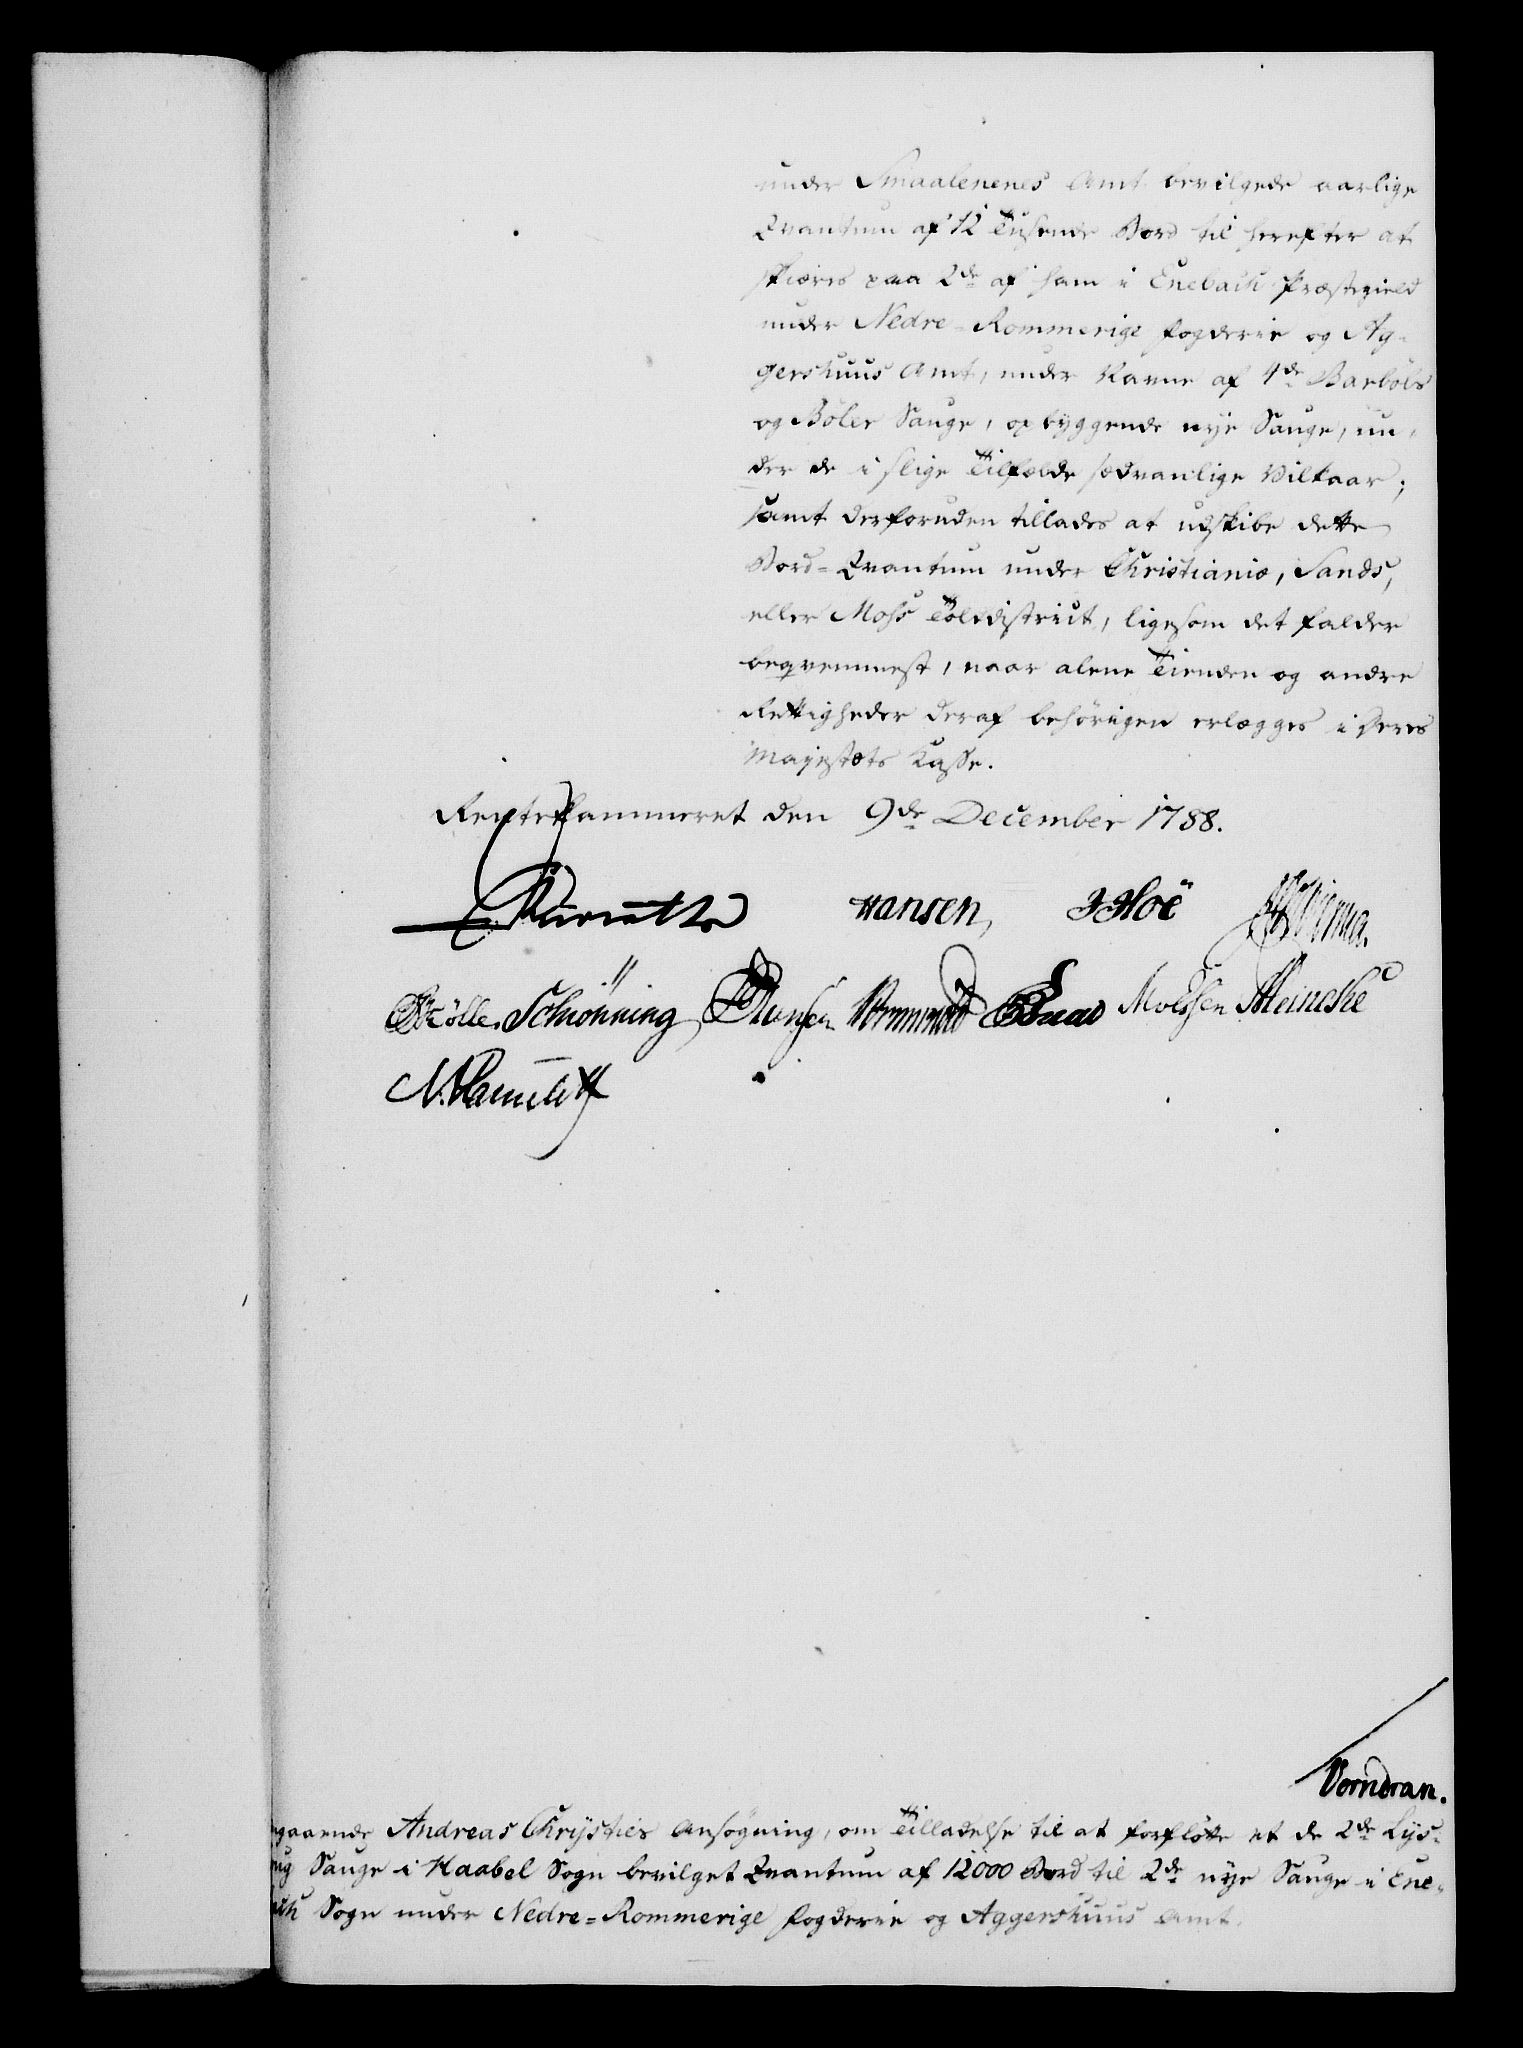 under Smaalenenes Amt bevilgede aarlige
Qvantum af 12 Tusende Bord til herefter at
skiæres paa 2de af ham i Enebach Præstegield
under Nedre=Rommerige Fogderie og Ag-
gershuus Amt, under Navn af 4de Barbøls
og Bøler Sauge, opbyggende nye Sauge, un-
der de i slige Tilfælde sædvanlige Vilkaar;
samt desforuden tillades at udskibe dette
Bord=Qvantum under Christianiæ, Sands,
eller Moss Tolddistrict, ligesom det falder
beqvemmest, naar alene Tienden og andre
Rettigheder deraf behørigen erlægges i Deres
Majestæts Kasse.
Rentekammeret den 9de December 1788.
Hansen, JHoë
Schiønning Meineke
Vorndran.
gaaende Andreas Chrysties Ansøgning, om Tilladelse til at forfløtte et de 2de Lys-
rug Sauge i Haabel Sogn bevilget Qvantum af 12000 Bord til 2de nye Sauge i Ene-
ach Sogn under Nedre=Rommerige Fogderie og Aggershuus Amt.